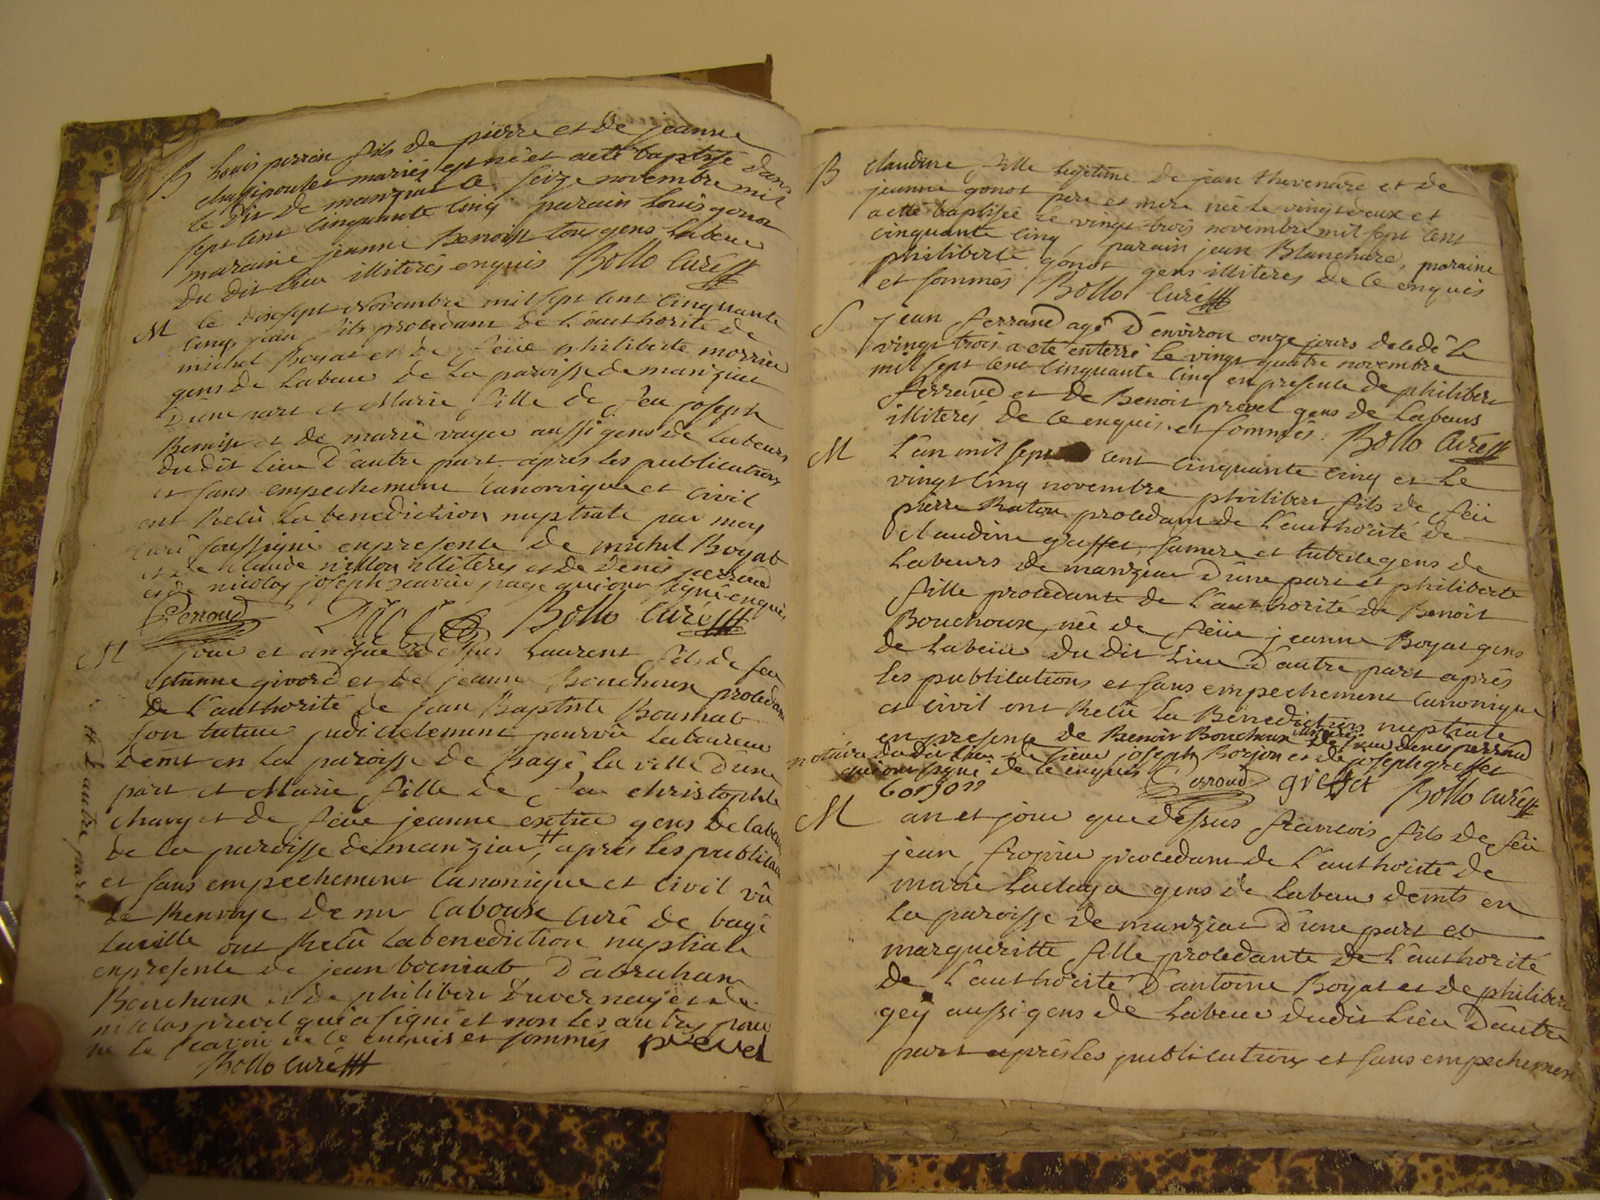 B Louis perrin fils de pierre et de jeanne
chassipoulet mariés est né et a eté baptisé dans
le dit de manziat le seize novembre mil
sept cent cinquante cinq parain Louis gonot
maraine jeanne Benoist tous gens labeur
du dit lieu illiterés enquis Bollo Curé
M le dixsept Novembre mil sept cent cinquante
cinq jean fils procedant de l'authorité de
michel Boyat et de feüe philiberte morrier
gens de Labeur de La paroisse de manziat
D'une part et Marie fille de feu joseph
Benoist et de marie vayer aussi gens de Labeurs
du dit Lieu D'autre part apres les publications
et sans empechement Canonique et Civil
ont Reçû La benediction nuptiale par moy
curé soussigné en presence de michel Boyat
et de Claude illiteres et de Denis perroud
et de nicolas joseph xavier page qui ont signé enquis
Perroud Bollo Curé
M jour et an que dessus Laurent fils de feu
etienne givord et de jeanne Bouchoux procedant
de l'authorité de jean Baptiste Bourniat
son tuteur judicielement pourvu Laboureur
demt en La paroisse de Bagé la ville d'une
part et Marie fille de feu christophle
charvet de feüe jeanne gens de labeur
de la paroisse de manziat, # apres les publications
et sans empechement Canonique et Civil vû
Le Renvoye de mr Caboux curé de bagé
Laville ont Reçû La benediction nuptiale
en presence de jean bourniat D'abraham
Bouchoux et de philibert Duvernay et de
nicolas prevel qui a signé et non les autres pour
ne le scavoir de ce enquis et sommés prevel
Bollo curé
# d'autre part
B claudine fille legitime de jean thevenard et de
jeanne gonot pere et mere née le vingt deux et
a eté baptisée le vingt trois novembre mil sept cent
cinquante cinq parain jean Blanchard, maraine
philiberte gonot gens illiteres de ce enquis
et sommés Bollo Curé
S jean ferrand agé D'environ onze jours decedé le
vingt trois a eté enterré le vingt quatre novembre
mil sept cent cinquante cinq en presence de philibert
ferrand et de Benoit prevel gens de Labeurs
illiterés de ce enquis et sommés. Bollo Curé
M L'an mil sept cent cinquante cinq et le
vingt cinq novembre philibert fils de feü
pierre Raton procedant de l'authorité de
Claudine greffet, sa mere et tutrice gens de
Labeurs de manziat D'une part et philiberte
fille procedante de l'authorité de Benoit
Bouchoux née de feüe jeanne Boyat gens
de Labeur du dit Lieu D'autre part après
les publications et sans empechement Canonique
et Civil ont Reçû La Benediction nuptiale
en presence de Benoit Bouchoux illiteré de sieur denis perroud
notaire du dit lieu de sieur joseph Borjon et de joseph greffet
qui ont signé de ce enquis Perroud greffet Bollo curé
borjon
M an et jour que dessus francois fils de feü
jean procedant de l'authorité de
marie gens de Labeur demts en
La paroisse de manziat D'une part et
margueritte fille procedante de l'authorité
de l'authorité D'antoine Boyat et de philiberte
gey aussi gens de Labeur dudit Lieu D'autre
part apres les publications et sans empechement